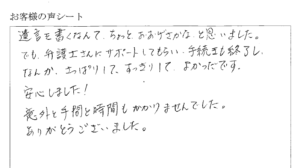 お客様の声シート
遺言を書くなんて、ちょっとおおげさかなと思いました。
でも、弁護士さんにサポートしてもらい、手続きも終了し、
なんか、さっぱりして、すっきりして、よかったです。
安心しました！
意外と手間と時間もかかりませんでした。
ありがとうございました。